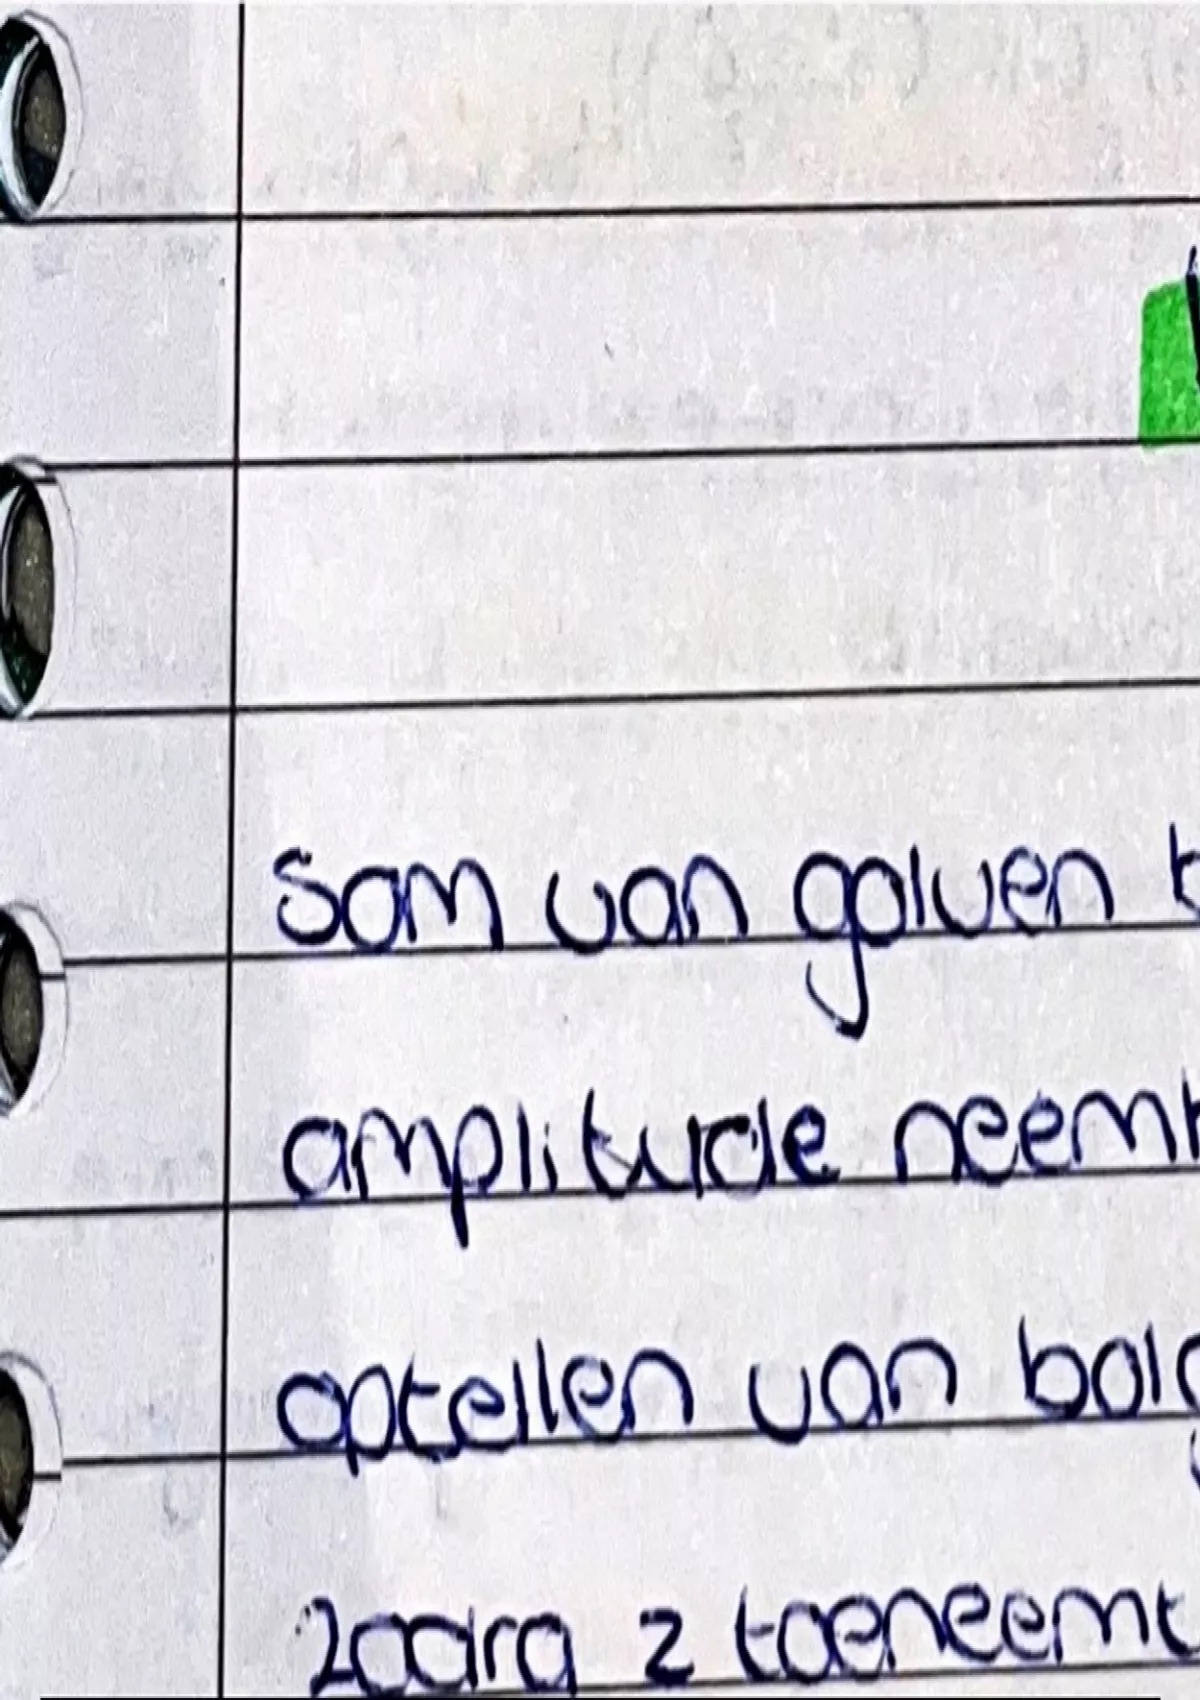 som van golven
amplitude neemt
optellen van
zodra z toeneemt